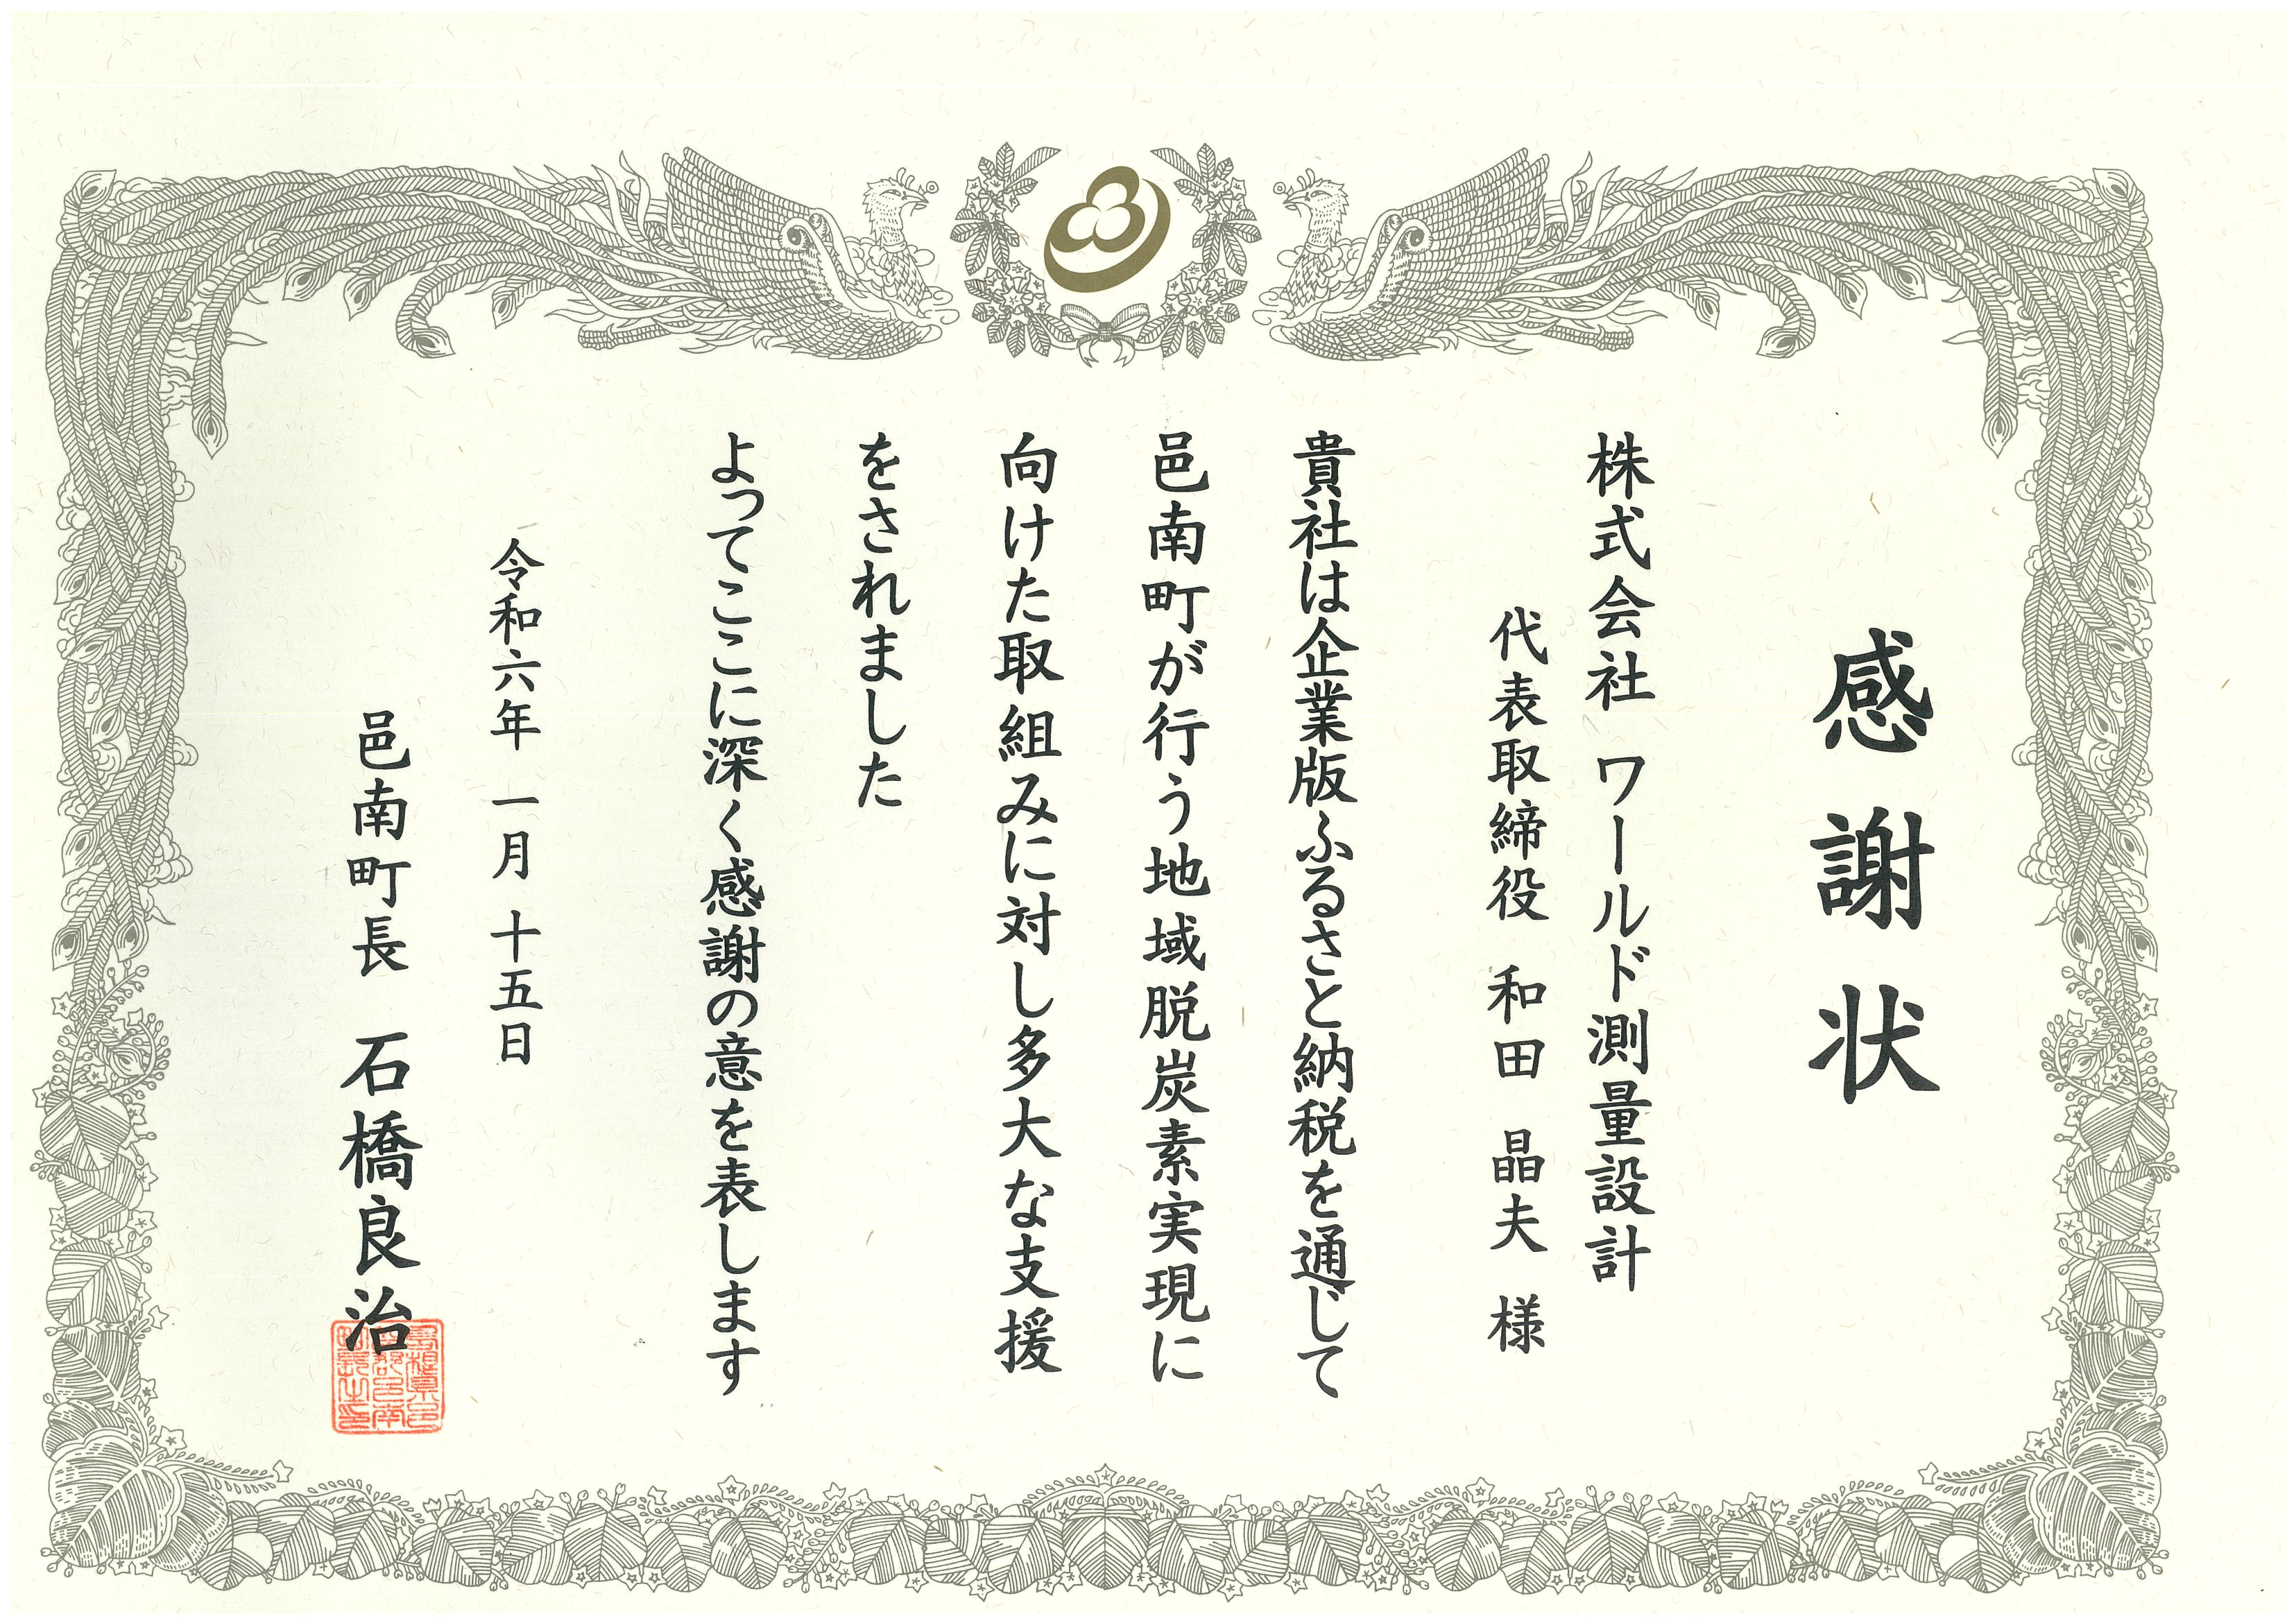 感謝状
株式会社 ワールド測量設計
代表取締役 和田 晶夫 様
貴社は企業版ふるさと納税を通じて
邑南町が行う地域脱炭素実現に
向けた取組みに対し多大な支援
をされました
よってここに深く感謝の意を表します
令和六年 一月 十五日
邑南町長 石橋良治
島根県邑
智郡邑南
町長之印